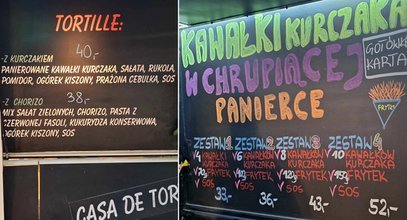 TORTILLE:
-Z KURCZAKIEM 40,-
PANIEROWANE KAWAŁKI KURCZAKA, SAŁATA, RUKOLA,
POMIDOR, OGÓREK KISZONY, PRAŻONA CEBULKA, SOS
-Z CHORIZO 38,-
MIX SAŁAT ZIELONYCH, CHORIZO, PASTA Z
CZERWONEJ FASOLI, KUKURYDZA KONSERWOWA,
OGÓREK KISZONY, SOS
CASA DE TOR
KAWAŁKI KURCZAKA
W CHRUPIĄCEJ
PANIERCE
GOTÓWK
KARTA
FRYTKI
ZESTAW 1 ZESTAW 2 ZESTAW 3 ZESTAW 4
4 KAWAŁKI KURCZAKA 6 KAWAŁKÓW KURCZAKA 8 KAWAŁKÓW KURCZAKA 10 KAWAŁKÓW KURCZAKA
FRYTEK FRYTEK FRYTEK FRYTEK
SOS SOS SOS SOS
33,- 36,- 43,- 52,-